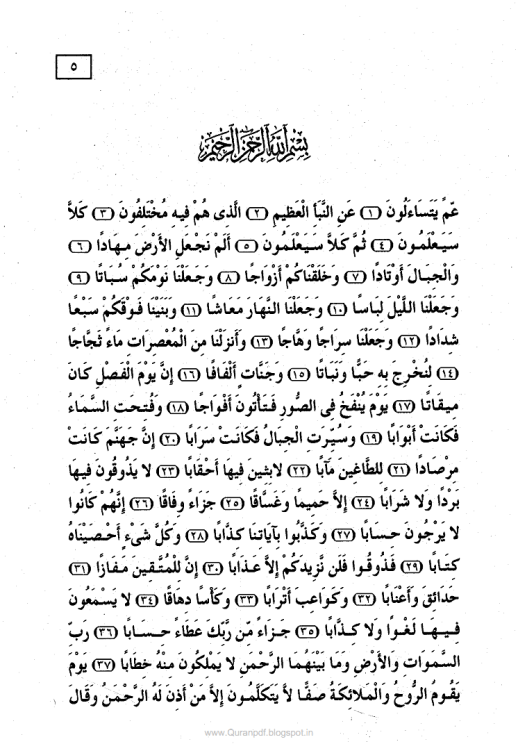 ٥
بِسْمِ اللَّهِ الرَّحْمَنِ الرَّحِيمِ
عَمَّ يَتَسَاءَلُونَ (١) عَنِ النَّبَأِ الْعَظِيمِ (٢) الَّذِى هُمْ فِيهِ مُخْتَلِفُونَ (٣) كَلاَّ
سَيَعْلَمُونَ (٤) ثُمَّ كَلاَّ سَيَعْلَمُونَ (٥) أَلَمْ نَجْعَلِ الأَرْضَ مِهَادًا (٦)
وَالْجِبَالَ أَوْتَادًا (٧) وَخَلَقْنَاكُمْ أَزْوَاجًا (٨) وَجَعَلْنَا نَوْمَكُمْ سُبَاتًا (٩)
وَجَعَلْنَا اللَّيْلَ لِبَاسًا (١٠) وَجَعَلْنَا النَّهَارَ مَعَاشًا (١١) وَبَنَيْنَا فَوْقَكُمْ سَبْعًا
شِدَادًا (١٢) وَجَعَلْنَا سِرَاجًا وَهَّاجًا (١٣) وَأَنزَلْنَا مِنَ الْمُعْصِرَاتِ مَاءً ثَجَّاجًا
(١٤) لِنُخْرِجَ بِهِ حَبًّا وَنَبَاتًا (١٥) وَجَنَّاتٍ أَلْفَافًا (١٦) إِنَّ يَوْمَ الْفَصْلِ كَانَ
مِيقَاتًا (١٧) يَوْمَ يُنفَخُ فِى الصُّورِ فَتَأْتُونَ أَفْوَاجًا (١٨) وَفُتِحَتِ السَّمَاءُ
فَكَانَتْ أَبْوَابًا (١٩) وَسُيِّرَتِ الْجِبَالُ فَكَانَتْ سَرَابًا (٢٠) إِنَّ جَهَنَّمَ كَانَتْ
مِرْصَادًا (٢١) لِلطَّاغِينَ مَآبًا (٢٢) لابِثِينَ فِيهَا أَحْقَابًا (٢٣) لا يَذُوقُونَ فِيهَا
بَرْدًا وَلا شَرَابًا (٢٤) إِلاَّ حَمِيمًا وَغَسَّاقًا (٢٥) جَزَاءً وِفَاقًا (٢٦) إِنَّهُمْ كَانُوا
لا يَرْجُونَ حِسَابًا (٢٧) وَكَذَّبُوا بِآيَاتِنَا كِذَّابًا (٢٨) وَكُلَّ شَىْءٍ أَحْصَيْنَاهُ
كِتَابًا (٢٩) فَذُوقُوا فَلَن نَّزِيدَكُمْ إِلاَّ عَذَابًا (٣٠) إِنَّ لِلْمُتَّقِينَ مَفَازًا (٣١)
حَدَائِقَ وَأَعْنَابًا (٣٢) وَكَوَاعِبَ أَتْرَابًا (٣٣) وَكَأْسًا دِهَاقًا (٣٤) لا يَسْمَعُونَ
فِيهَا لَغْوًا وَلا كِذَّابًا (٣٥) جَزَاءً مِّن رَّبِّكَ عَطَاءً حِسَابًا (٣٦) رَبِّ
السَّمَوَاتِ وَالأَرْضِ وَمَا بَيْنَهُمَا الرَّحْمَنِ لا يَمْلِكُونَ مِنْهُ خِطَابًا (٣٧) يَوْمَ
يَقُومُ الرُّوحُ وَالْمَلائِكَةُ صَفًّا لاَّ يَتَكَلَّمُونَ إِلاَّ مَنْ أَذِنَ لَهُ الرَّحْمَنُ وَقَالَ
www.Quranpdf.blogspot.in